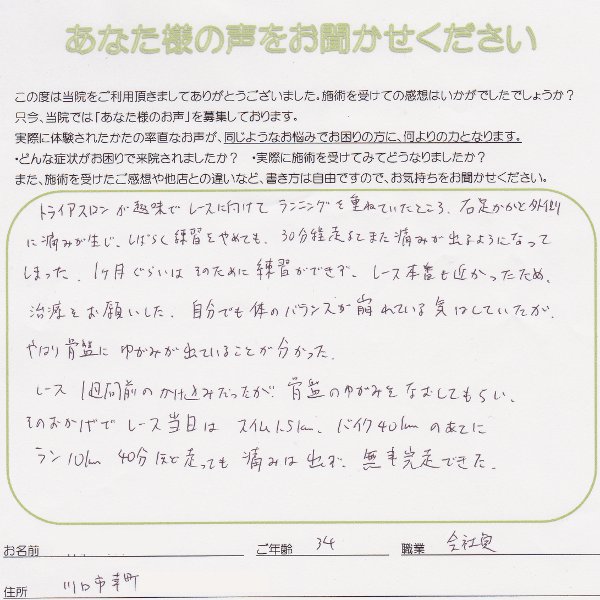 あなた様の声をお聞かせください
この度は当院をご利用頂きましてありがとうございました。施術を受けての感想はいかがでしたでしょうか？
只今、当院では「あなた様のお声」を募集しております。
実際に体験されたかたの率直なお声が、同じようなお悩みでお困りの方に、何よりの力となります。
・どんな症状がお困りで来院されましたか？　・実際に施術を受けてみてどうなりましたか？
また、施術を受けたご感想や他店との違いなど、書き方は自由ですので、お気持ちをお聞かせください。
トライアスロンが趣味でレースに向けてランニングを重ねていたところ、右足かかと外側
に痛みが生じ、しばらく練習をやめても、30分程走るとまた痛みが出るようになって
しまった。1ヶ月ぐらいはそのために練習ができず、レース本番も近かったため、
治療をお願いした。自分でも体のバランスが崩れている気はしていたが、
やはり骨盤にゆがみが出ていることが分かった。
レース1週間前のかけ込みだったが、骨盤のゆがみをなおしてもらい、
そのおかげでレース当日はスイム1.5km、バイク40kmのあとに
ラン10km 40分ほど走っても痛みは出ず、無事完走できた。
お名前　ご年齢 34　職業 会社員
住所 川口市幸町